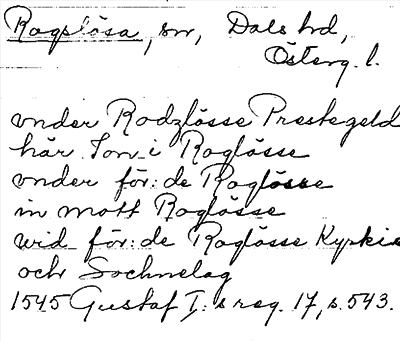 Rogslösa, sn, Dals hd,
Österg. l.
vnder Rodzlösse Prestegeld
här Jon i Roglösse
vnder för: de Roglösse
in mott Roglösse
wid för: de Roglösse Kyrkie
och Sochnelag
1545 Gustaf I:s reg. 17, s. 543.